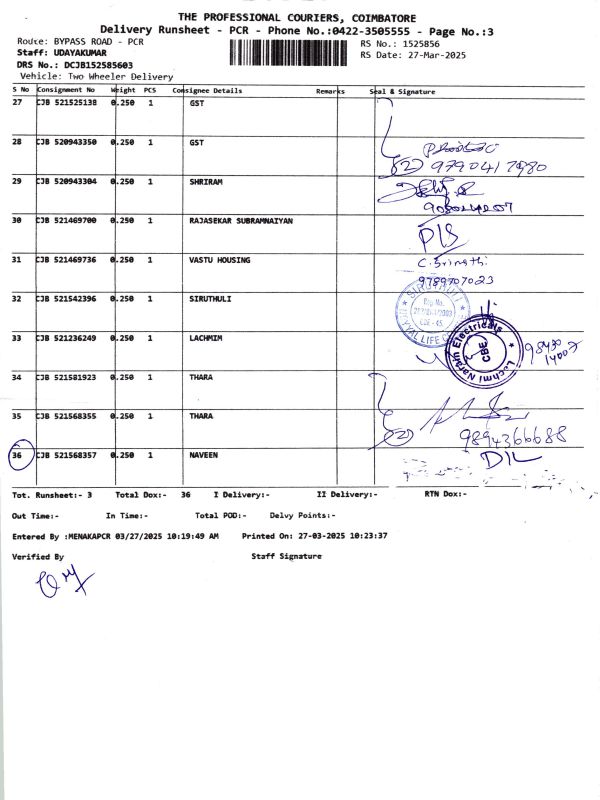 THE PROFESSIONAL COURIERS, COIMBATORE
Delivery Runsheet - PCR - Phone No.:0422-3505555 - Page No.:3
Route: BYPASS ROAD - PCR RS No.: 1525856
Staff: UDAYAKUMAR RS Date: 27-Mar-2025
DRS No.: DCJB152585603
Vehicle: Two Wheeler Delivery
S No Consignment No Weight PCS Consignee Details Remarks Seal & Signature
27 CJB 521525138 0.250 1 GST
28 CJB 520943350 0.250 1 GST
(2) 9790417980
29 CJB 520943304 0.250 1 SHRIRAM
30 CJB 521469700 0.250 1 RAJASEKAR SUBRAMNAIYAN
D/S
31 CJB 521469736 0.250 1 VASTU HOUSING C. Srinathi
9789707023
32 CJB 521542396 0.250 1 SIRUTHULI
SIRUTHULI
Reg No.
33 CJB 521236249 0.250 1 LACHMIM
Electricals
CBE
34 CJB 521581923 0.250 1 THARA
35 CJB 521568355 0.250 1 THARA
(2) 9894366688
36 CJB 521568357 0.250 1 NAVEEN D/L
Tot. Runsheet:- 3 Total Dox:- 36 I Delivery:- II Delivery:- RTN Dox:-
Out Time:- In Time:- Total POD:- Delvy Points:-
Entered By :MENAKAPCR 03/27/2025 10:19:49 AM Printed On: 27-03-2025 10:23:37
Verified By Staff Signature